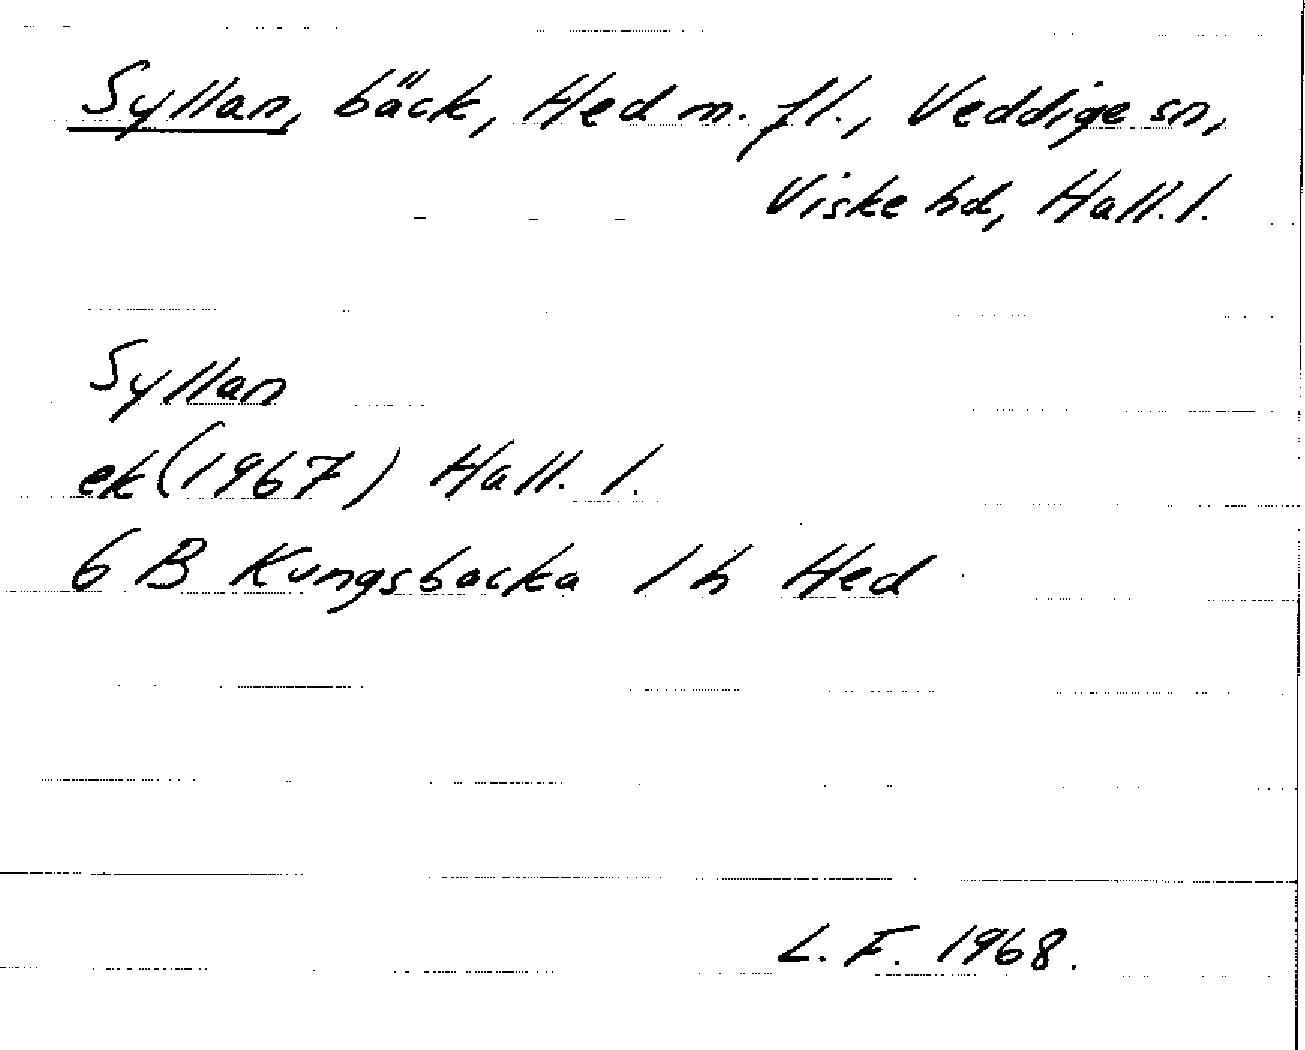 Syllan, bäck, Hed m. fl., Veddige sn,
Viske hd, Hall. l.
Syllan
ek (1967) Hall. l.
6 B Kungsbacka 1 h Hed
L. F. 1968.